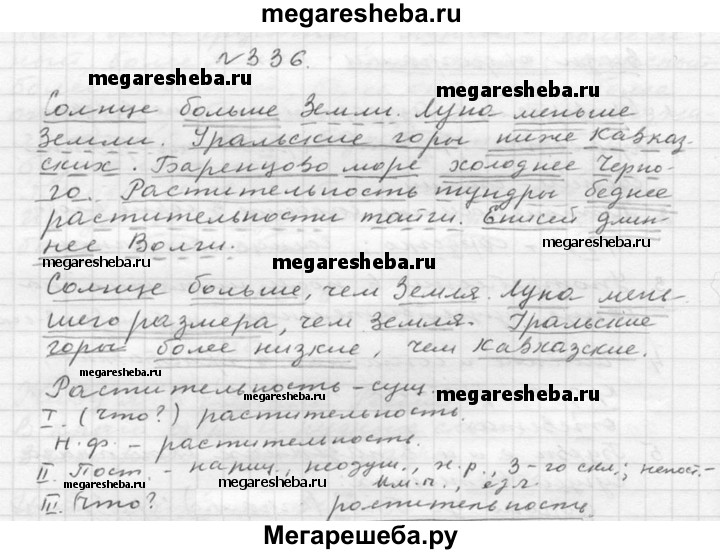 megaresheba.ru
№336.
megaresheba.ru megaresheba.ru
Солнце больше Земли. Луна меньше
Земли. Уральские горы ниже Кавказ-
ских. Баренцово море холоднее Черно-
го. Растительность тундры беднее
растительности тайги. Енисей длин-
нее Волги.
megaresheba.ru megaresheba.ru megaresheba.ru
Солнце больше, чем Земля. Луна мень-
шего размера, чем Земля. Уральские
горы более низкие, чем Кавказские.
megaresheba.ru megaresheba.ru
Растительность – сущ.
megaresheba.ru
I. (Что?) растительность.
Н.ф. – растительность.
II. Пост. – нариц., неодуш., ж.р., 3-го скл.; непост. –
megaresheba.ru им.п., ед.ч. megaresheba.ru
III. Что? растительность.
Мегарешеба.ру